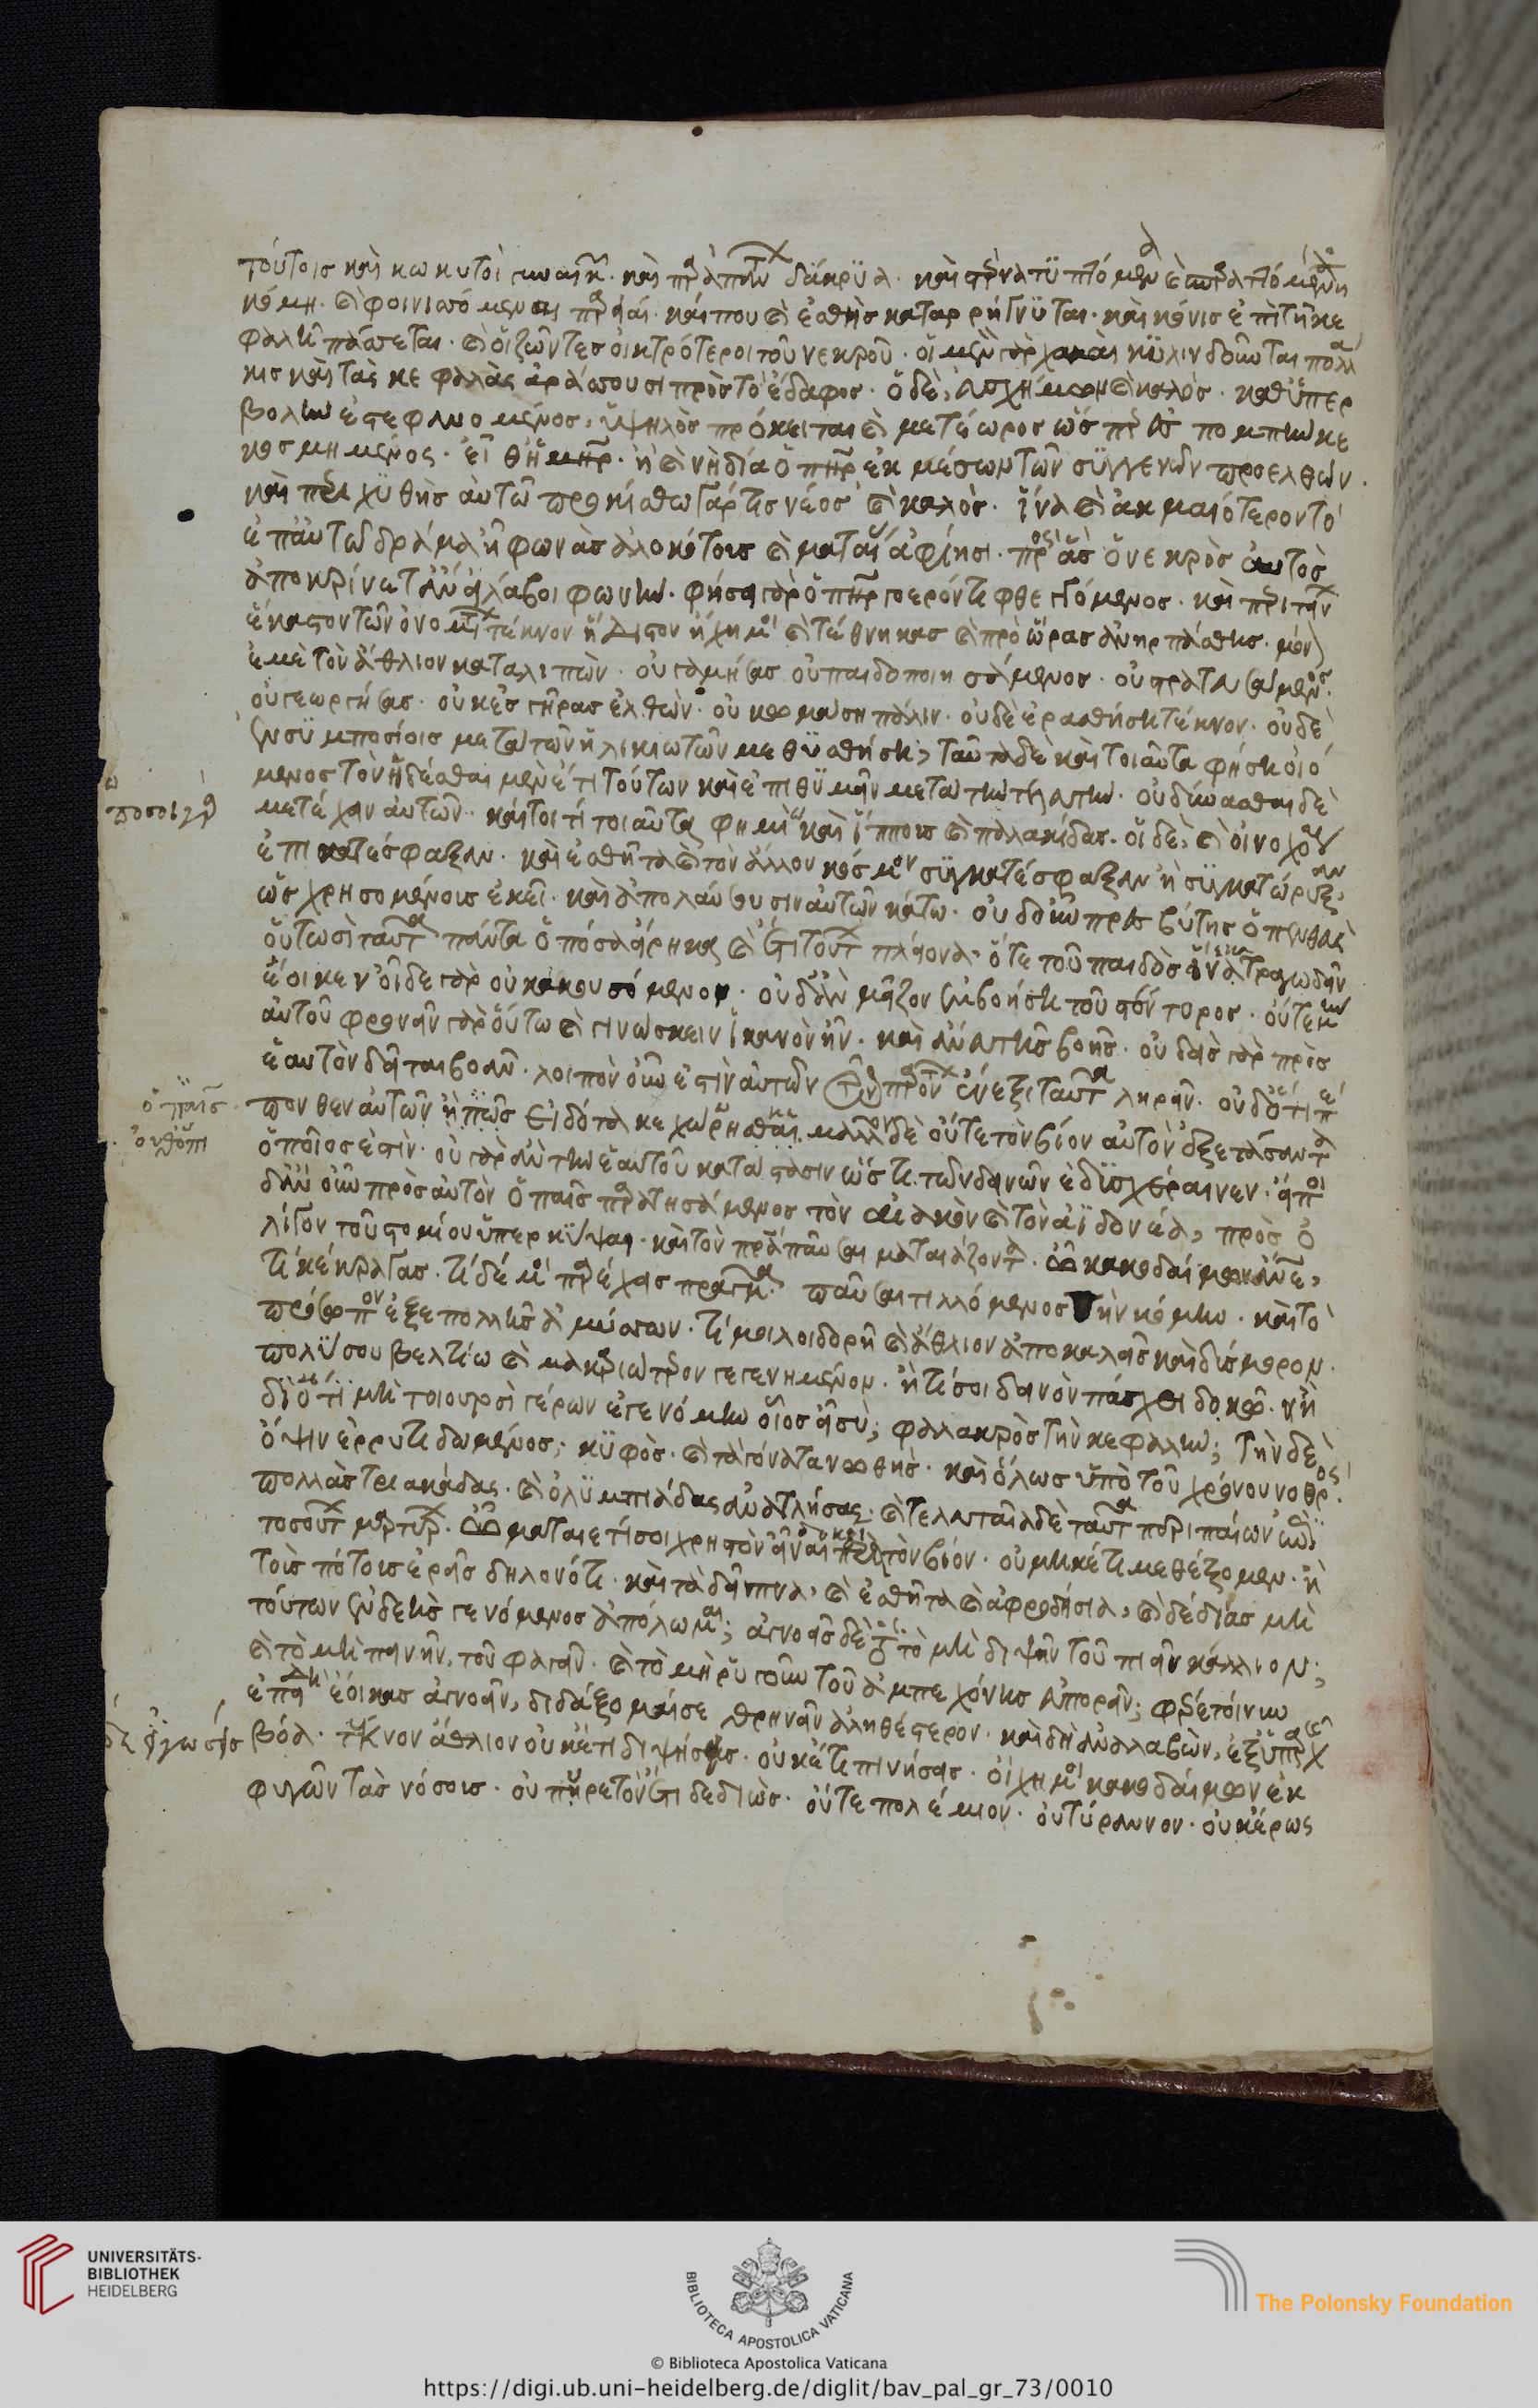 τούτοις καὶ κωκυτοὶ γυναικ. καὶ πρὰ πάντων δάκρϋα. καὶ στέρνα τϋπτόμενα καὶ σπαραττόμενη
κόμη. καὶ φοινισσόμεναι παρειαί. καί που καὶ ἐσθὴς καταρρήγνϋται. καὶ κόνις ἐπὶ τῆ κε
φαλῆ πάσσεται. καὶ οἱ ζῶντες οἰκτρότεροι τοῦ νεκροῦ. οἱ μὲν γὰρ χαμαὶ κϋλινδοῦνται πολλά
κις καὶ τὰς κεφαλὰς ἀράττουσι πρὸς τὸ ἔδαφος. ὁ δὲ, εὐσχήμων καὶ καλὸς. καθ' ὑπερ
βολὴν ἐστεφανομένος, ὑψηλὸς πρόκειται καὶ μετέωρος ὥσπερ εἰς πομπὴν κε
κοσμημένος. εἶθ' ἡ μήτηρ. ἢ καὶ νὴ δία ὁ πατὴρ ἐκ μέσων τῶν σϋγγενῶν προελθὼν.
καὶ περιχϋθεὶς αὐτῶ προκείσθω γάρ τις νέος καὶ καλὸς. ἵνα καὶ ἀκμαιότερον τὸ
ἐπ' αὐτῶ δράμα ἦ φωνὰς ἀλοκότους καὶ ματαίας ἀφίησι. πρὸς ἃς ὁ νεκρὸς αὐτὸς
ἀποκρίνατ' ἂν εἰ λάβοι φωνὴν. φήσει γὰρ ὁ πατὴρ γοερόν τι φθεγγόμενος. καὶ παρατείνων
ἕκαστον τῶν ὀνομάτων τέκνον ἥδιστον οἴχη μοι καὶ τέθνηκας καὶ πρὸ ὥρας ἀνηρπάσθης. μόν
ἐμὲ τὸν ἄθλιον καταλιπὼν. οὐ γαμήσας οὐ παιδοποιησάμενος. οὐ στρατευσάμενος.
οὐ γεωργήσας. οὐκ εἰς γῆρας ἐλθὼν. οὐ κωμάση πάλιν. οὐδὲ ἐρασθήση τέκνον. οὐδὲ
ἐν σϋμποσίοις μετὰ τῶν ἡλικιωτῶν μεθϋσθήση, ταῦτα δὲ καὶ τοιαῦτα φήσει οἰό
μενος τὸν ὑὸν δέεσθαι μὲν ἔτι τούτων καὶ ἐπιθϋμεῖν μετὰ τὴν τελευτὴν. οὐ δύνασθαι δὲ
μετέχειν αὐτῶν. καίτοι τί ταῦτα φημὶ πόσοι γὰρ καὶ ἵππους καὶ παλακίδας. οἱ δὲ, καὶ οἰνοχόους
ἐπικατέσφαξαν. καὶ ἐσθῆτα καὶ τὸν ἄλλον κόσμον σϋγκατέσφαξαν ἢ σϋγκατώρυξαν,
ὡς χρησομένοις ἐκεῖ. καὶ ἀπολαύσουσιν αὐτῶν κάτω. ὁ δ' οὖν πρεσβύτης ὁ πενθῶν
οὑτωσὶ ταῦτα πάντα ὁπόσα εἴρηκα καὶ ἔτι τούτων πλείονα, οὔτε τοῦ παιδὸς ἕνεκα τραγωδεῖν
ἔοικεν οἶδε γὰρ οὐκ ἀκουσόμενον. οὐδ' ἂν μεῖζον ἐμβοήση τοῦ στέντορος. οὔτε μὴν
αὑτοῦ φρονεῖν γὰρ οὕτω καὶ γινώσκειν ἱκανὸν ἦν. καὶ ἄνευ τῆς βοῆς. οὐδεὶς γὰρ πρὸς
ἑαυτὸν δεῖται βοᾶν. λοιπὸν οὖν ἐστὶν αὐτὸν τῶν παρόντων ἕνεκα ταῦτα ληρεῖν. οὐδ' ὅ τι πέ
πονθεν αὐτῶ ὁ παῖς εἰδότα οὐδ' ὅποι κεχώρηκε. μᾶλλον δὲ οὔτε τὸν βίον αὐτὸν ἐξετάσαντα
ὁποῖος ἐστὶν. οὐ γὰρ ἂν τὴν ἑαυτοῦ κατάστασιν ὥς τι τῶν δεινῶν ἐδϋσχέραινεν. εἴποι
δ' ἂν οὖν πρὸς αὐτὸν ὁ παῖς παραιτησάμενος τὸν αἰακὸν καὶ τὸν ἀϊδονέα, πρὸς ὀ
λίγον τοῦ στομίου ὑπερκϋψαι. καὶ τὸν πρὰ παῦσαι ματαιάζοντα. ὦ κακόδαιμον ἄνθρωπε,
τί κέκραγας. τί δέ μοι παρέχεις πράγματα. παῦσαι τιλλόμενος τὴν κόμην. καὶ τὸ
πρόσωπον ἐξ ἐπιπολῆς ἀμύσσων. τί μοι λοιδορῆ καὶ ἄθλιον ἀποκαλεῖς καὶ δύσμορον.
πολύ σου βελτίω καὶ μακαριώτερον γεγενημένον. ἢ τί σοι δεινὸν πάσχειν δοκῶ. ἢ
διότι μὴ τοιουτοσὶ γέρων ἐγενόμην οἷος εἶ σὺ; φαλακρὸς τὴν κεφαλὴν; τὴν δὲ
ὄψιν ἐρρυτιδωμένος; κϋφὸς. καὶ τὰ γόνατα νωθὴς. καὶ ὅλως ὑπὸ τοῦ χρόνου νοθρὸς.
πολλὰς τριακάδας. καὶ ὀλϋμπιάδας ἀνατλήσας. καὶ τελευταῖα δὲ ταῦτα παραπαίων ἐπὶ
τοσούτων μαρτύρων. ὦ μάταιε τί σοι χρηστὸν εἶναι δοκεῖ περὶ τὸν βίον. οὗ μηκέτι μεθέξομεν. ἢ
τοὺς πότους ἐρεῖς δηλονότι. καὶ τὰ δεῖπνα, καὶ ἐσθῆτα καὶ ἀφροδίσια, καὶ δέδιας μὴ
τούτων ἐνδεὴς γενόμενος ἀπόλωμαι; ἀγνοεῖς δὲ ὅτι τὸ μὴ διψῆν τοῦ πιεῖν κάλλιον;
καὶ τὸ μὴ πεινῆν, τοῦ φαγεῖν. καὶ τὸ μὴ ῥιγοῦν τοῦ ἀμπεχόνης εὐπορεῖν; φέρε τοίνυν
ἐπειδὴ ἔοικας ἀγνοεῖν, διδάξομαί σε θρηνεῖν ἀληθέστερον. καὶ δὴ ἀναλαβὼν, ἐξ ὑπαρχῆς
βόα. τέκνον ἄθλιον οὐκέτι διψήσεις. οὐκέτι πεινήσεις. οἴχη μοι κακοδαίμων ἐκ
φυγὼν τὰς νόσους. οὐ πϋρετὸν ἔτι δεδιὼς. οὔτε πολέμιον. οὐ τύραννον. οὐκ ἔρως
ὁ παῖς
UNIVERSITÄTS-
BIBLIOTHEK
HEIDELBERG
BIBLIOTECA APOSTOLICA VATICANA
The Polonsky Foundation
© Biblioteca Apostolica Vaticana
https://digi.ub.uni-heidelberg.de/diglit/bav_pal_gr_73/0010